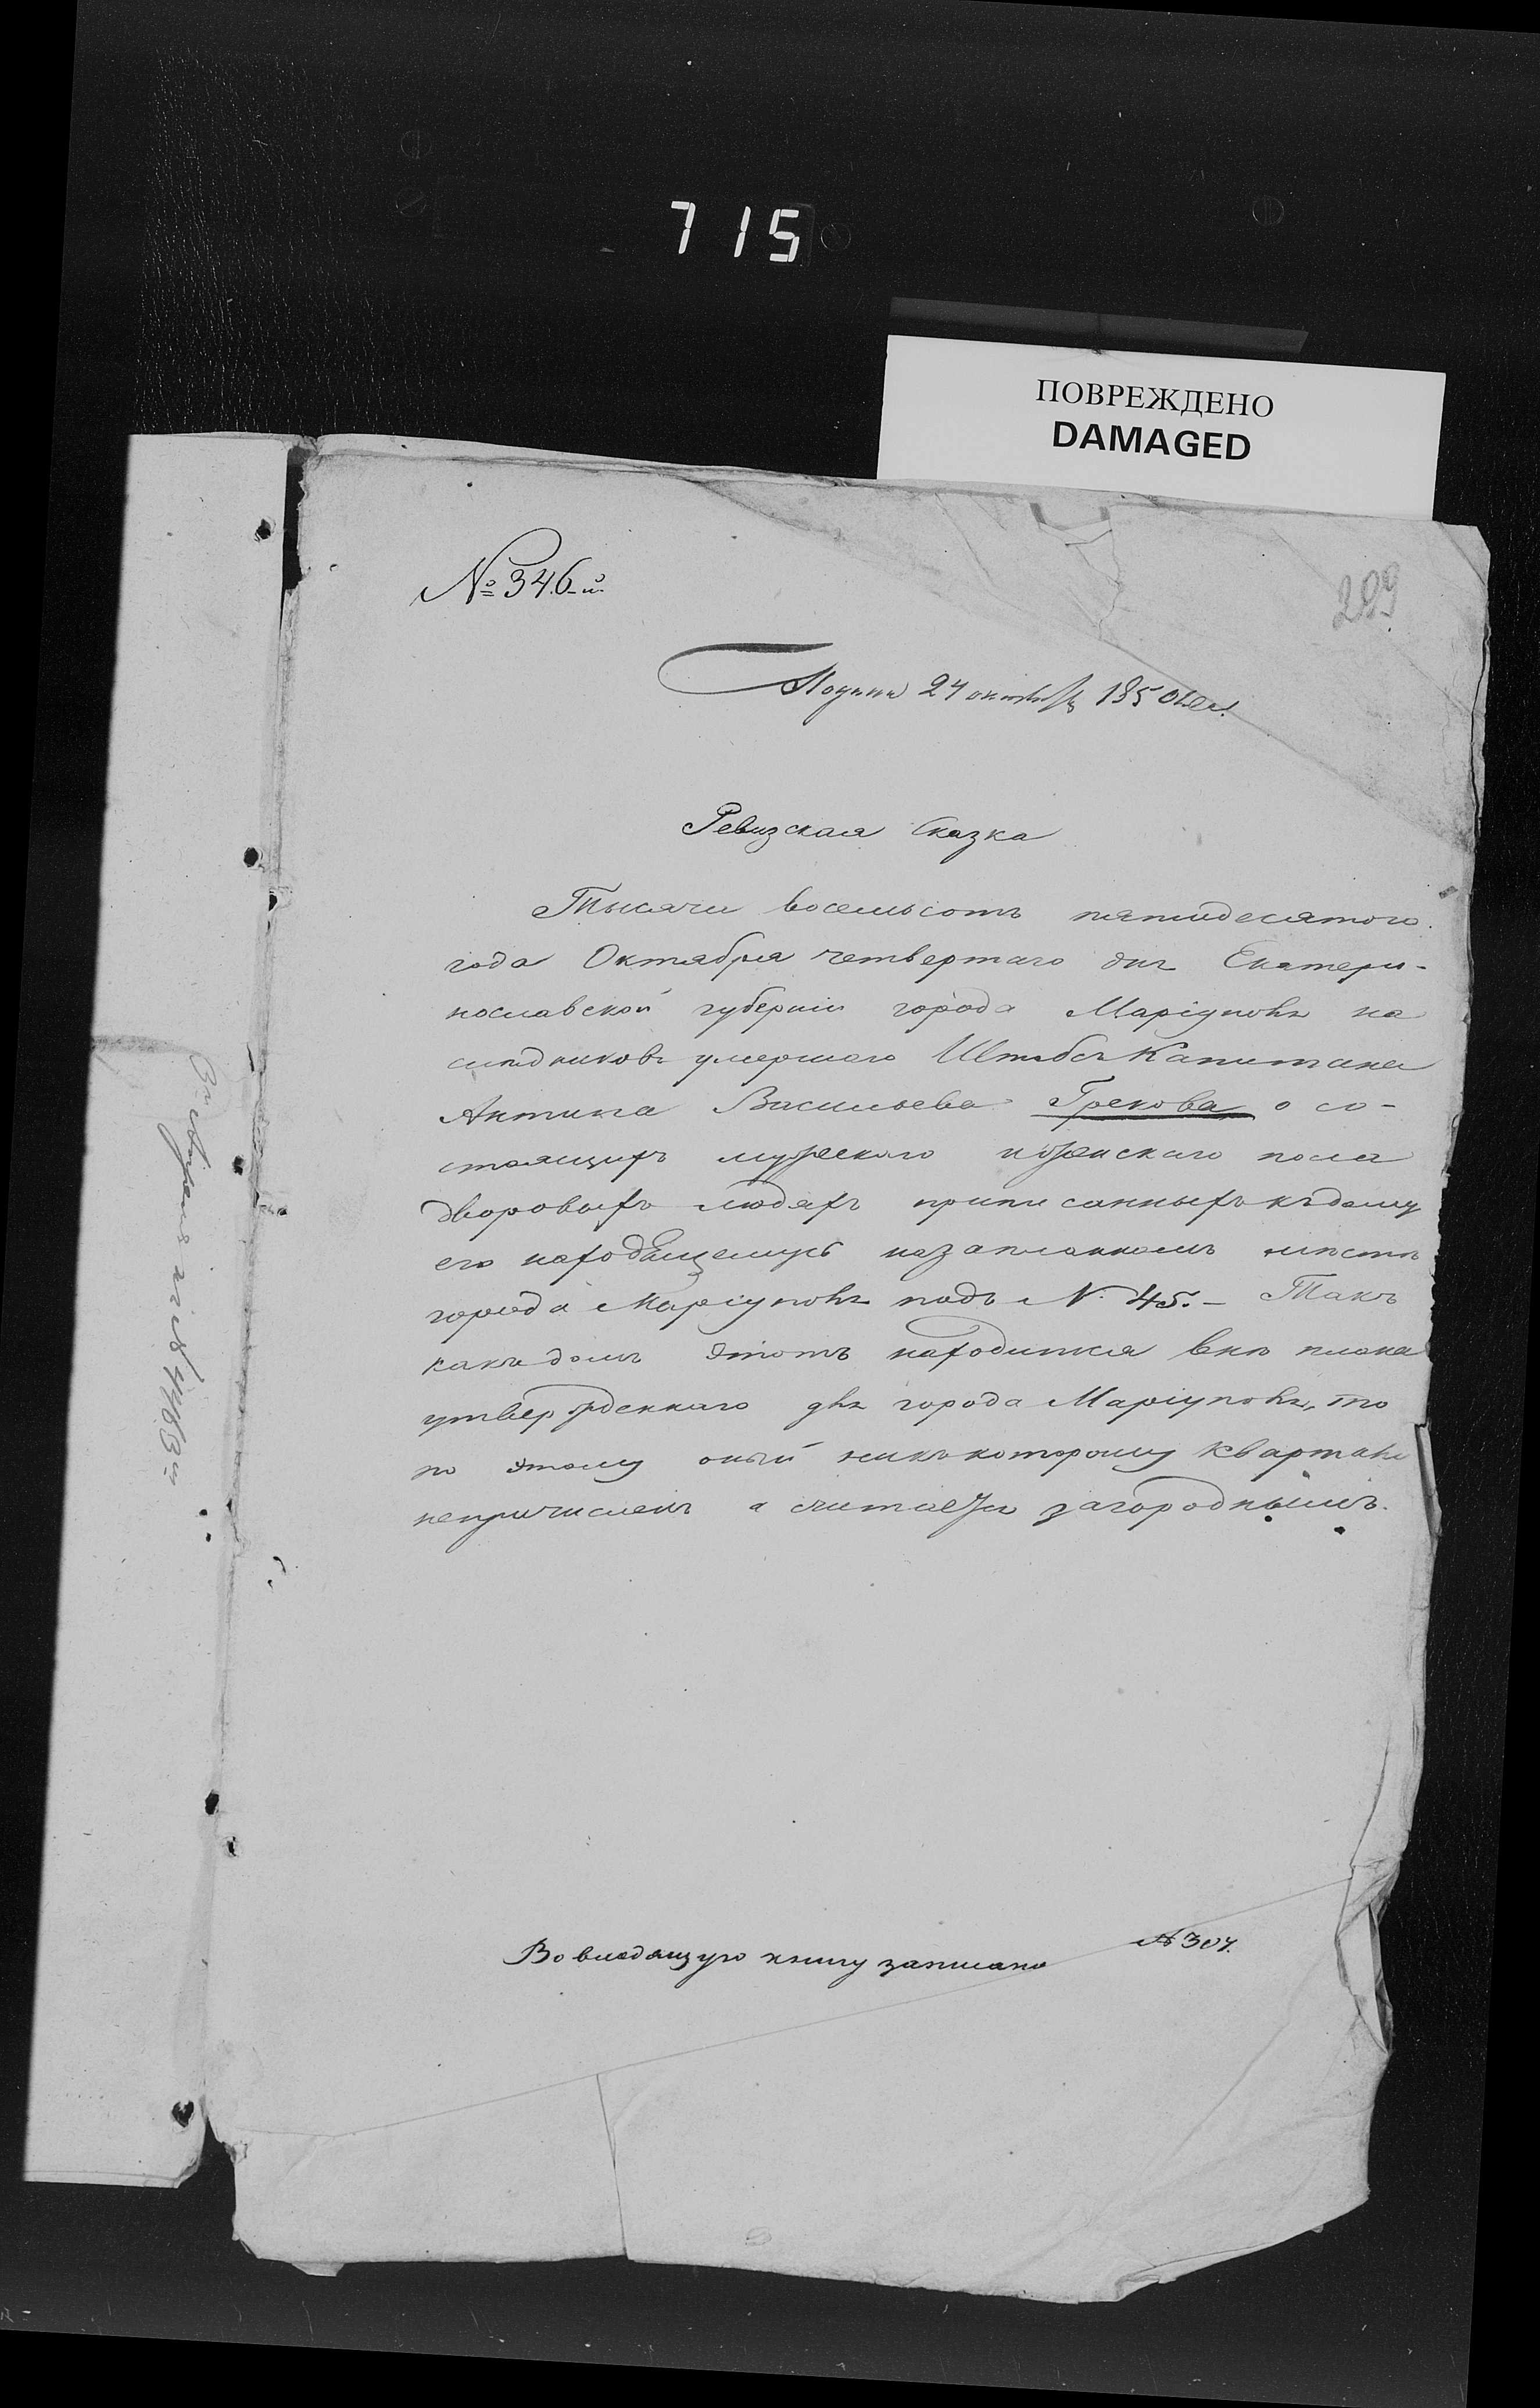 715
ПОВРЕЖДЕНО
DAMAGED
№ 346-й
289
24 октября 1850 года
Ревизская Сказка
Тысяча восемьсотъ пятидесятого
года Октября четвертаго дня Екатери-
нославской губерніи города Маріуполя на
слѣдниковъ умершаго Штабсъ Капитана
Антипа Васильева Грекова о со-
стоящихъ мужескаго и женскаго пола
дворовыхъ людяхъ приписанныхъ къ дому
его находящемуся назапланномъ мѣстѣ
города Маріуполя подъ N. 45. - Такъ
какъ домъ этотъ находится внѣ плана
утвержденнаго для города Маріуполя, то
по этому оный никъ которому Кварталу
непричисленъ а считается загороднымъ.
Во входящую книгу записано № 304.